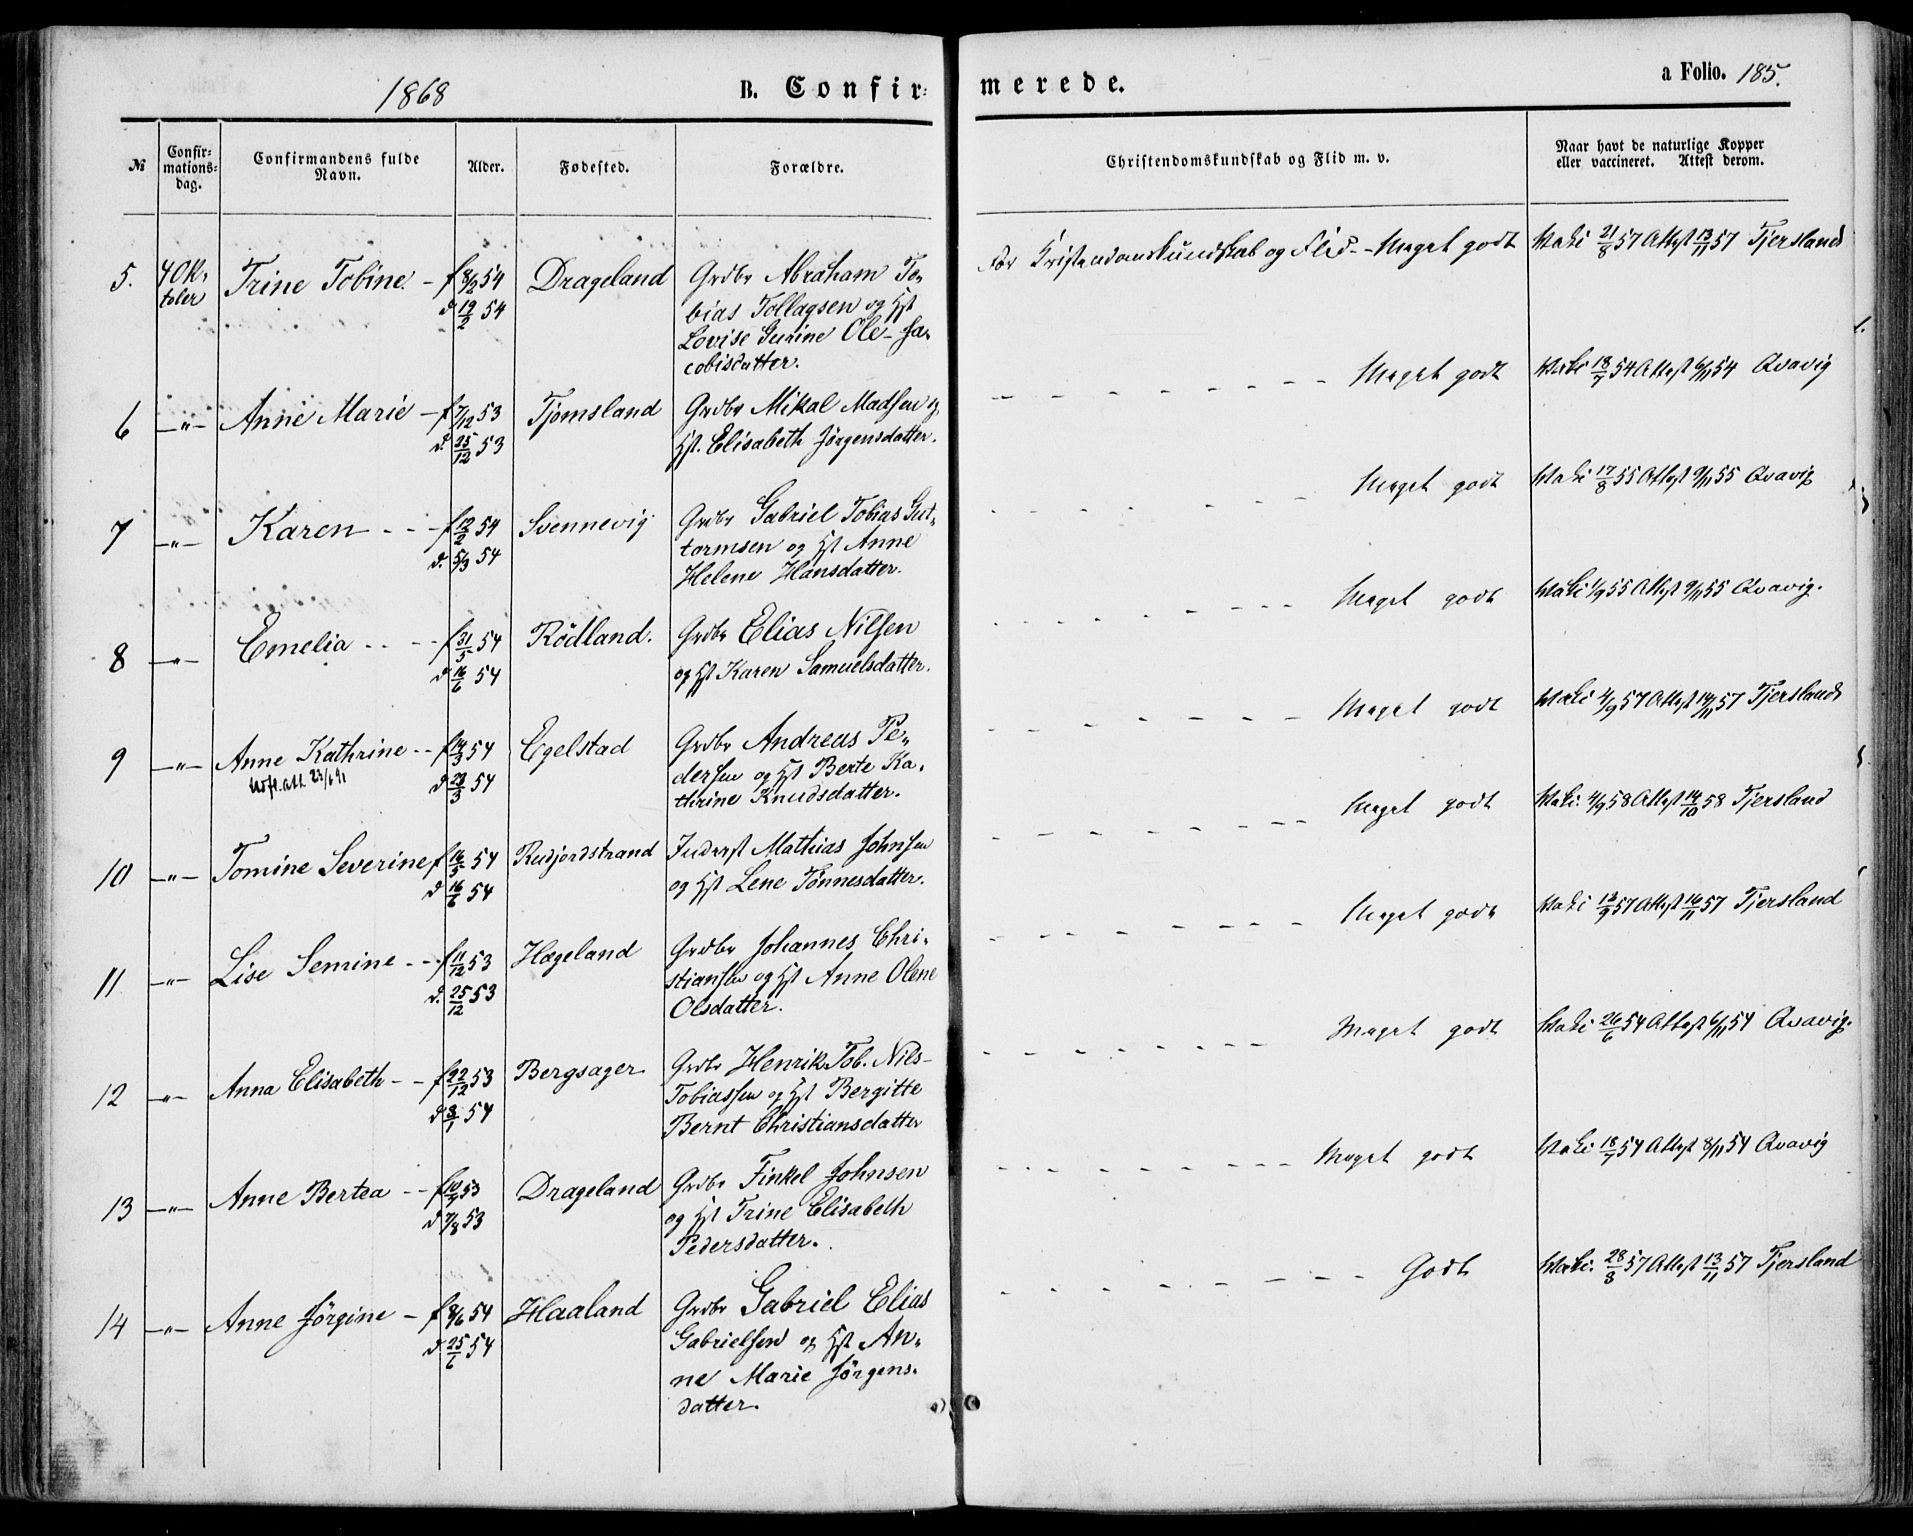 1868 B. Confir- merede. a Folio. 185.
№ Confir-mations-dag. Confirmandens fulde Navn. Alder. Fødested. Forældre. Christendomskundskab og Flid m. v. Naar havt de naturlige Kopper eller vaccineret. Attest derom.
5. 4 Ok- Trine Tobine - f 8/2 54 Drageland Grdbr Abraham To-
tober d 19/2 54 bias Tollagsen og Hst
Lovise Gurine Ole-Ja-
cobisdatter.
For Kristendomskundskab og Flid - Meget godt Vaki 21/8 57 Attest 13/11 57 Tjersland
6 -"- Anne Marie - f 7/12 53 Tjomsland Grdbr Mikal Madsen og
d. 25/12 53 Hst. Elisabeth Jörgensdatter.
Meget godt Vaki 18/7 54 Attest 6/11 54 Qvavig
7 -"- Karen - - f 12/2 54 Svennevig Grdbr Gabriel Tobias Gut-
d. 5/3 54 tormsen og Hst Anne
Helene Hansdatter.
Meget godt Vaki 17/8 55 Attest 9/11 55 Qvavig
8 -"- Emelia - - f 31/5 54 Rödland. Grdbr Elias Nilsen
d 16/6 54 og Hst Karen Samuelsdatter.
Meget godt Vaki 1/9 55 Attest 9/11 55 Qvavig.
9 -"- Anne Kathrine - - f 14/3 54 Egelstad Grdbr Andreas Pe-
d 28/3 54 dersen og Hst Berte Ka-
thrine Knudsdatter.
Meget godt Vaki 4/9 57 Attest 14/11 57 Tjersland
10 -"- Tomine Severine f 16/5 54 Rudjordstrand Inderst Mathias Johnsen
d 16/6 54 og Hst Lene Tönnesdatter.
Meget godt Vaki. 4/9 58 Attest 14/10 58 Tjersland
11 -"- Lise Semine - - f 11/12 53 Hægeland Grdbr Johannes Chri-
d. 25/12 53 stiansen og Hst Anne Olene
Olsdatter.
Meget godt Vaki 12/9 57 Attest 16/11 57 Tjersland
12 -"- Anna Elisabeth - - f 22/12 53 Bergsager Grdbr Henrik Tob. Nils-
d 3/1 54 Tobiassen og Hst Bergitte
Bernt Christiansdatter
Meget godt Vaki 26/6 54 Attest 6/11 54 Qvavig.
13 -"- Anne Bertea - - f 10/7 53 Drageland Grdbr Finkel Johnsen
d 7/8 53 og Hst Trine Elisabeth
Pedersdatter.
Meget godt Vaki 18/7 54 Attest 8/11 54 Qvavig
14 -"- Anne Jörgine - f 8/6 54 Haaland Grdbr Gabriel Elias
d. 25/6 54 Gabrielsen og Hst An-
ne Marie Jörgens-
datter.
Godt Vaki. 28/8 57 Attest 13/11 57 Tjersland